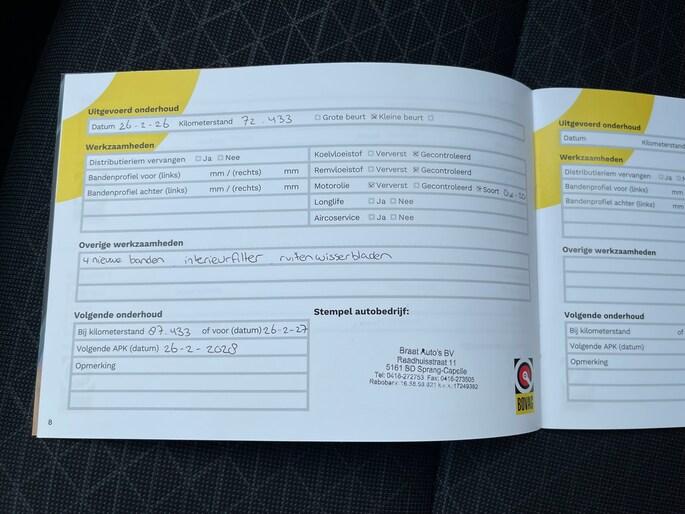 Uitgevoerd onderhoud
Datum 26-2-26 Kilometerstand 72.433 Grote beurt Kleine beurt
Werkzaamheden
Distributieriem vervangen Ja Nee
Bandenprofiel voor (links) mm / (rechts) mm
Bandenprofiel achter (links) mm / (rechts) mm
Koelvloeistof Ververst Gecontroleerd
Remvloeistof Ververst Gecontroleerd
Motorolie Ververst Gecontroleerd Soort
Longlife Ja Nee
Aircoservice Ja Nee
Overige werkzaamheden
4 nieuwe banden interieurfilter ruitenwisserbladen
Volgende onderhoud
Bij kilometerstand 87.433 of voor (datum) 26-2-27
Volgende APK (datum) 26-2-2028
Opmerking
Stempel autobedrijf:
Braat Auto's BV
Raadhuisstraat 11
5161 BD Sprang-Capelle
Tel: 0416-272753 Fax: 0416-273505
BOVAG
8
Uitgevoerd onderhoud
Datum Kilometerstand
Werkzaamheden
Distributieriem vervangen Ja
Bandenprofiel voor (links) mm
Bandenprofiel achter (links) mm
Overige werkzaamheden
Volgende onderhoud
Bij kilometerstand of
Volgende APK (datum)
Opmerking